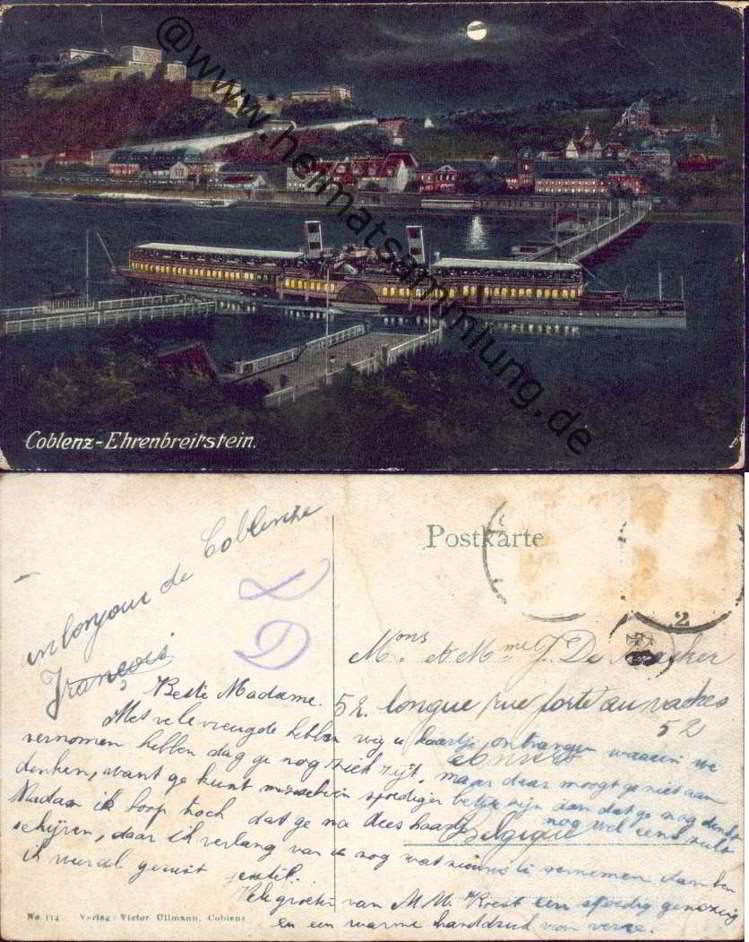 @www.heimatsammlung.de
Coblenz-Ehrenbreitstein.
un bonjour de Coblence
François
Postkarte
2
Mons & Mme J. De
52. longue rue porte aux vaches
52
Anvers
Belgique
Beste Madame.
Met vele vreugde hebben wij u kaartje ontvangen waarin we
vernomen hebben dag ge nog ziek zijt. maar daar moogt ge niet aan
denken, want ge kunt misschien spoediger beter zijn dan dat ge nog denkt
Madam ik hoop toch dat ge na dees kaart nog wel eens zult
schijven, daar ik verlang van u nog wat nieuws te vernemen dan ben
ik weral gerust gestelt.
Vele groeten van M. M. een spoedig genezing
en een warme handdruk van verre.
No. 114 Verlag: Victor Ullmann, Coblenz